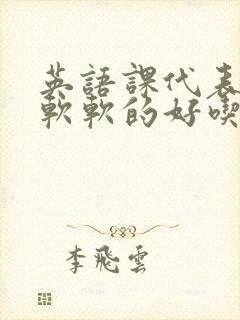 英語課代表
軟軟的好喫
李飛雲